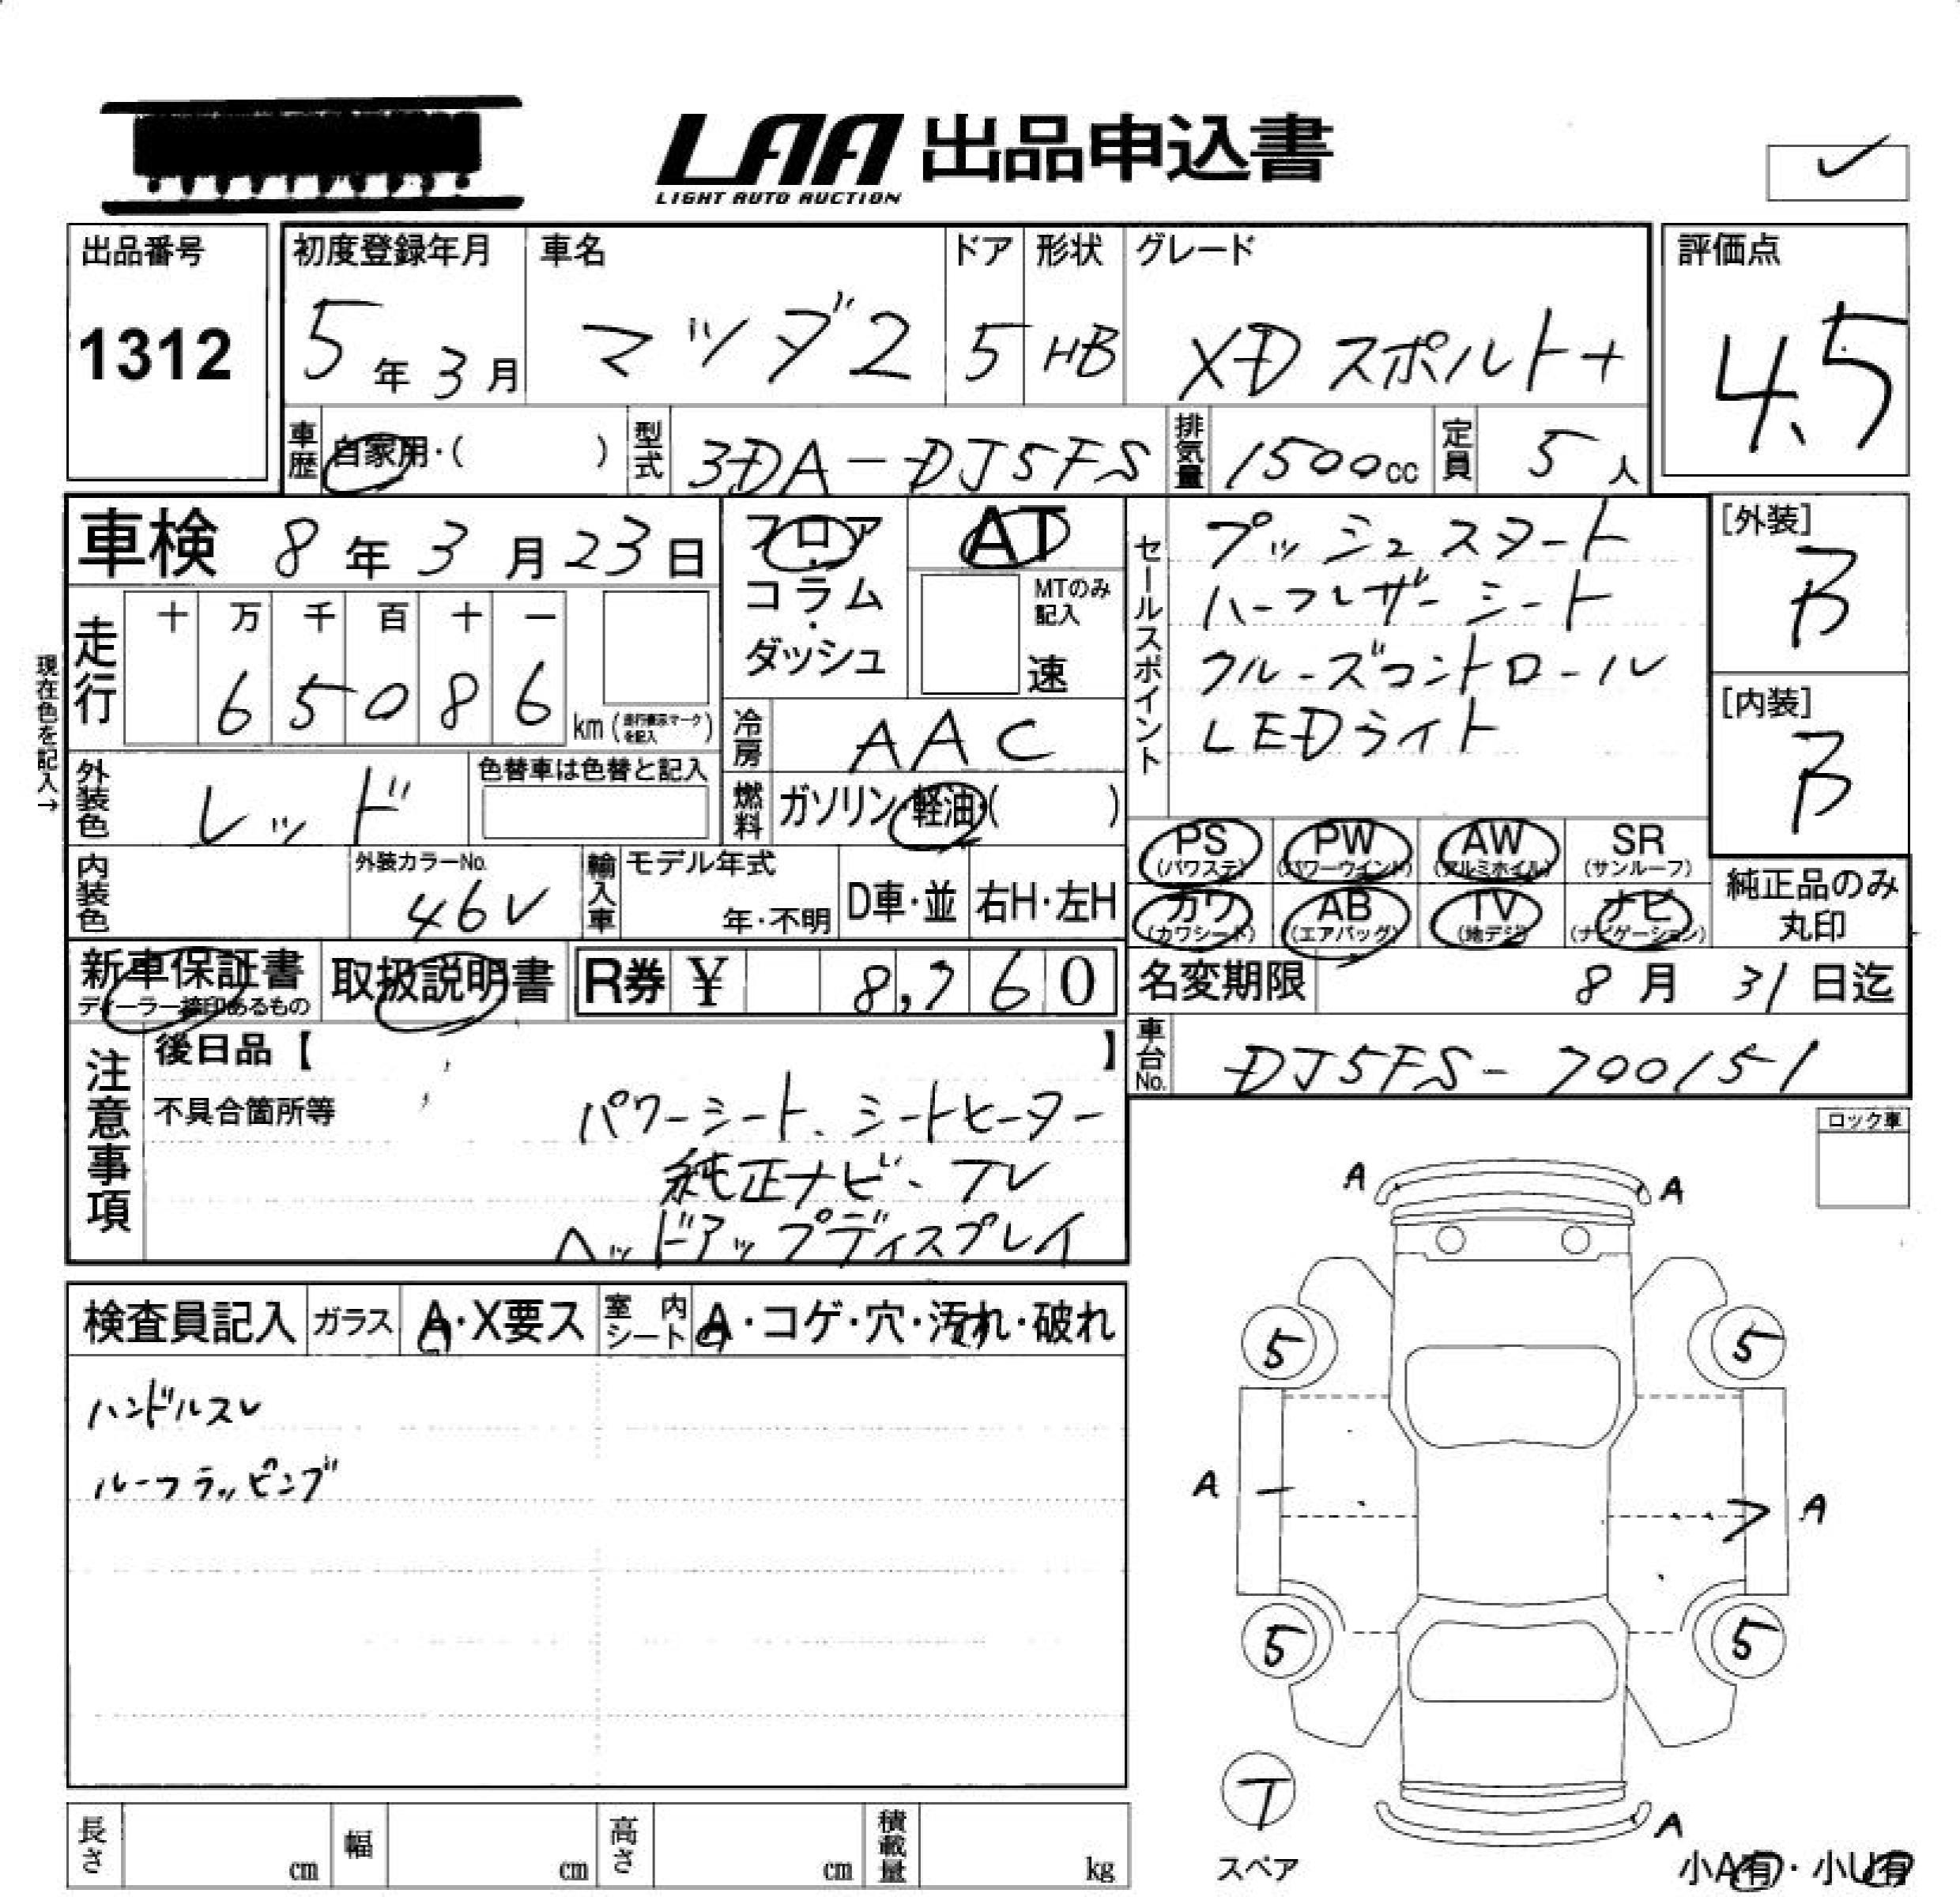 LAA 出品申込書
LIGHT AUTO AUCTION
出品番号
1312
初度登録年月
5年3月
車名
マツダ2
ドア
5
形状
HB
グレード
XD スポルト+
評価点
4.5
車歴
自家用・( )
型式
3DA-DJ5FS
排気量
1500cc
定員
5人
車検 8年3月23日
フロア・コラム・ダッシュ
AT
MTのみ記入
速
セールスポイント
プッシュスタート
ハーフレザーシート
クルーズコントロール
LEDライト
[外装]
B
[内装]
B
現在色を記入→
走行
十 万 千 百 十 一
6 5 0 8 6
km (走行表示マークを記入)
冷房
AAC
外装色
レッド
色替車は色替と記入
燃料
ガソリン・軽油・( )
PS (パワステ)
PW (パワーウインド)
AW (アルミホイル)
SR (サンルーフ)
カワ (カワシート)
AB (エアバッグ)
TV (地デジ)
ナビ (ナビゲーション)
純正品のみ丸印
内装色
外装カラーNo.
46V
輸入車
モデル年式
年・不明
D車・並
右H・左H
新車保証書
ディーラー捺印あるもの
取扱説明書
R券 ¥ 8,760
名変期限 8月31日迄
車台No.
DJ5FS-700151
注意事項
後日品【 】
不具合箇所等
パワーシート、シートヒーター
純正ナビ、TV
ヘッドアップディスプレイ
ロック車
検査員記入
ガラス A・X要ス
室内シート A・コゲ・穴・汚れ・破れ
ハンドルスレ
ルーフラッピング
A A
5 5
A A
5 5
T
スペア
A
小A有・小U有
長さ cm
幅 cm
高さ cm
積載量 kg